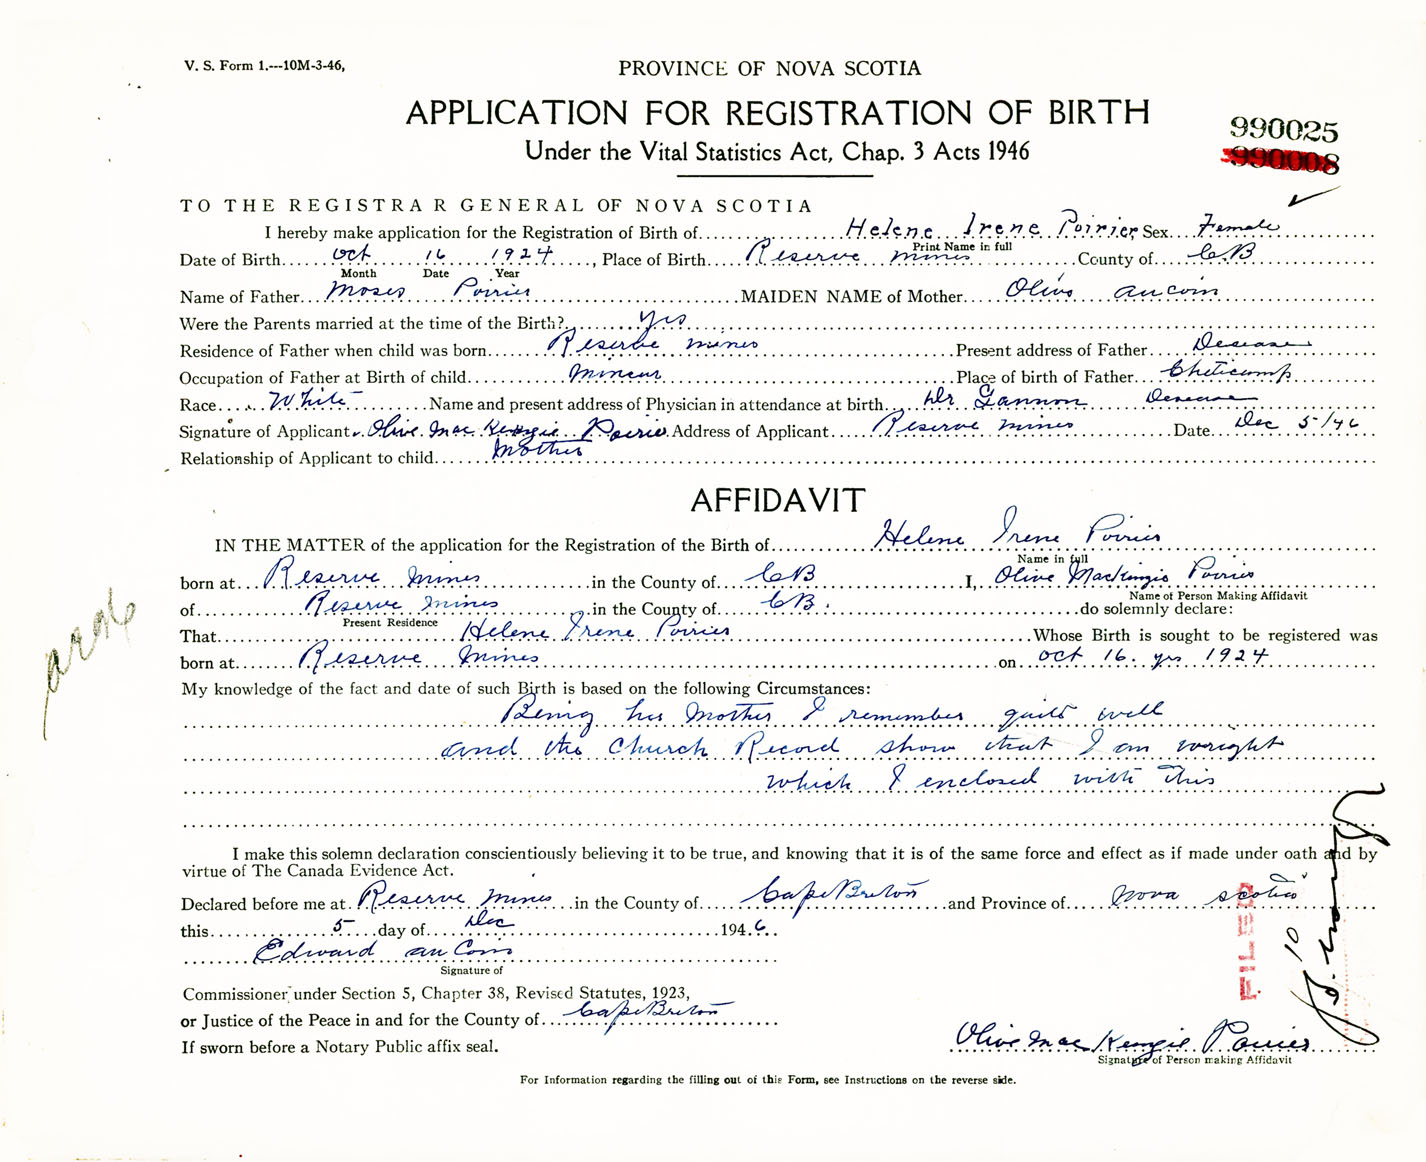 V. S. Form 1.---10M-3-46,
PROVINCE OF NOVA SCOTIA
APPLICATION FOR REGISTRATION OF BIRTH
Under the Vital Statistics Act, Chap. 3 Acts 1946
990025
990008
TO THE REGISTRAR GENERAL OF NOVA SCOTIA
I hereby make application for the Registration of Birth of Helene Irene Poirier Sex Female
Print Name in full
Date of Birth Oct 16 1924, Place of Birth Reserve mines County of CB
Month Date Year
Name of Father Moses Poirier MAIDEN NAME of Mother Olive aucoin
Were the Parents married at the time of the Birth? yes
Residence of Father when child was born Reserve mines Present address of Father Desease
Occupation of Father at Birth of child minear Place of birth of Father Cheticamp
Race White Name and present address of Physician in attendance at birth Dr Gannon Desease
Signature of Applicant Olive Mac Kenzie Poirier Address of Applicant Reserve mines Date Dec 5/46
Relationship of Applicant to child Mother
AFFIDAVIT
IN THE MATTER of the application for the Registration of the Birth of Helene Irene Poirier
Name in full
born at Reserve Mines in the County of CB I, Olive MacKinzie Poirier
Name of Person Making Affidavit
of Reserve Mines in the County of CB. do solemnly declare:
Present Residence
That Helene Irene Poirier Whose Birth is sought to be registered was
born at Reserve Mines on oct 16. yrs 1924
My knowledge of the fact and date of such Birth is based on the following Circumstances:
Being her Mother I remember quite well
and the Church Record show that I am wright
which I enclosed with this
I make this solemn declaration conscientiously believing it to be true, and knowing that it is of the same force and effect as if made under oath and by
virtue of The Canada Evidence Act.
Declared before me at Reserve Mines in the County of Cape Breton and Province of Nova Scotia
this 5 day of Dec 1946.
Edward auCoin
Signature of
Commissioner under Section 5, Chapter 38, Revised Statutes, 1923,
or Justice of the Peace in and for the County of Cape Breton
If sworn before a Notary Public affix seal.
Olive Mac Kenzie Poirier
Signature of Person making Affidavit
For Information regarding the filling out of this Form, see Instructions on the reverse side.
FILED
10